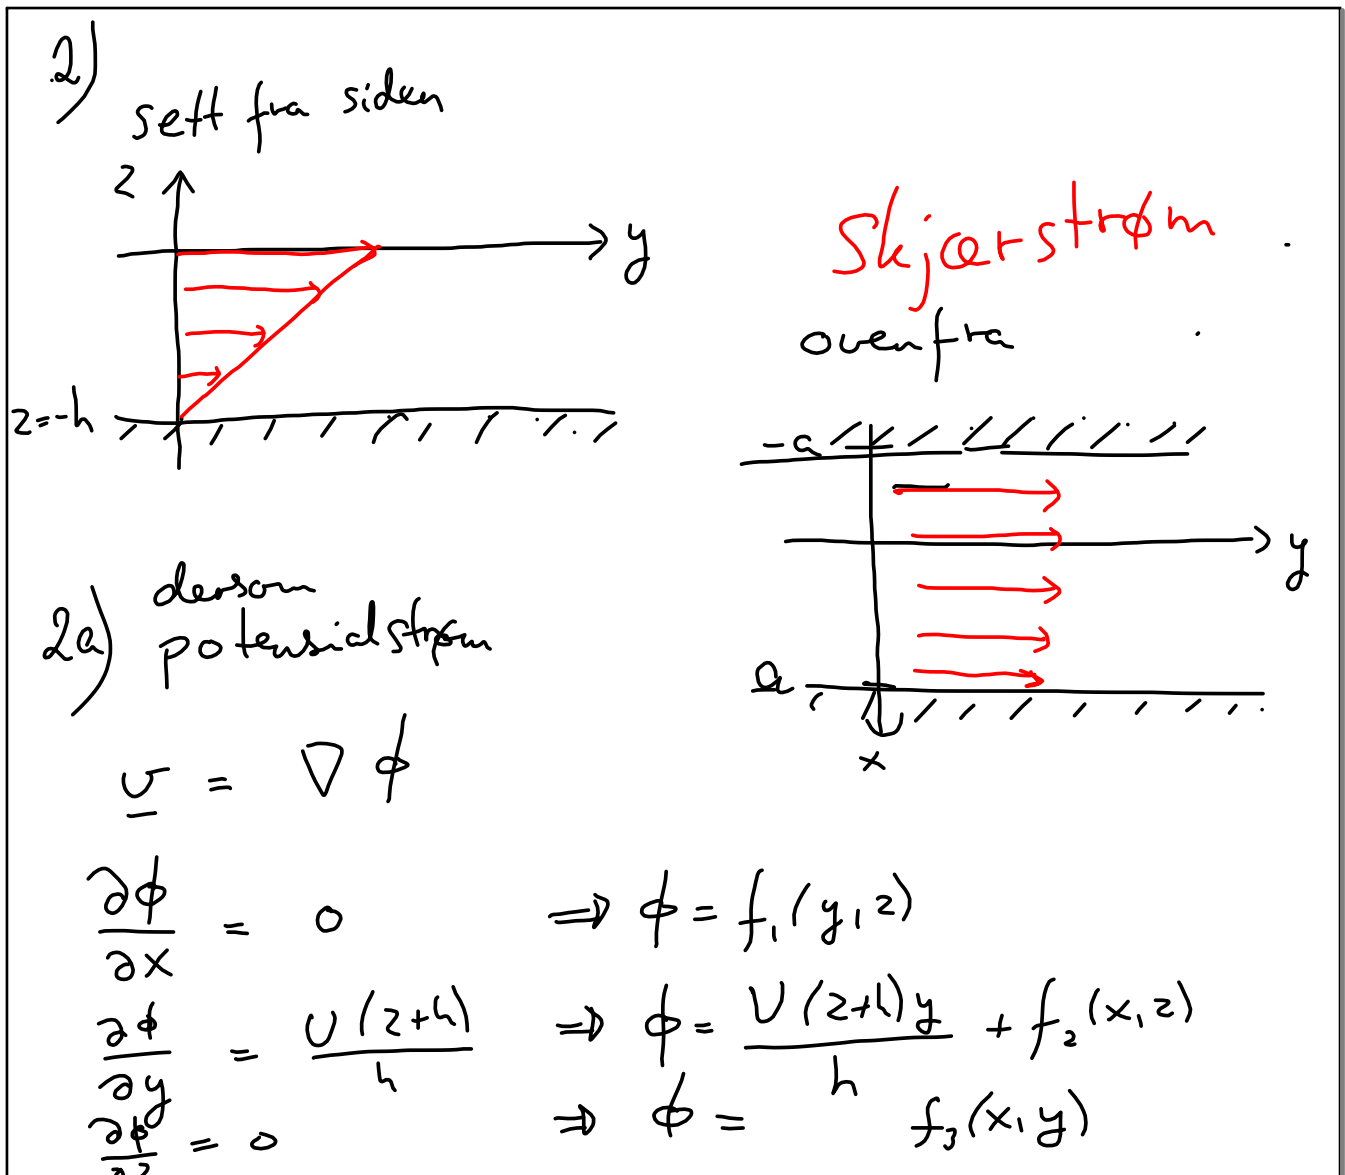 2)
sett fra siden
z
y
z=-h
Skjærstrøm
ovenfra
-a
y
a
x
2a) dersom
potensialstrøm
v = ∇ϕ
∂ϕ/∂x = 0 ⇒ ϕ = f₁(y,z)
∂ϕ/∂y = U(z+h)/h ⇒ ϕ = U(z+h)y/h + f₂(x,z)
∂ϕ/∂z = 0 ⇒ ϕ = f₃(x,y)